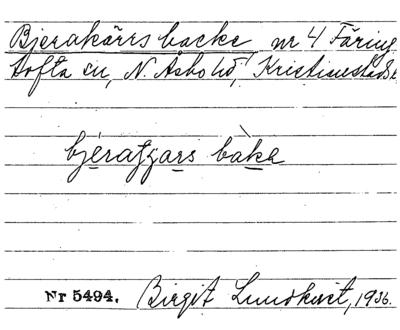 Bjerakärrs backe nr 4 Färing
tofta sn, N. Åsbo hd, Kristianstads l.
bjératʒars bàka
Nr 5494. Birgit Lundkvist, 1936.